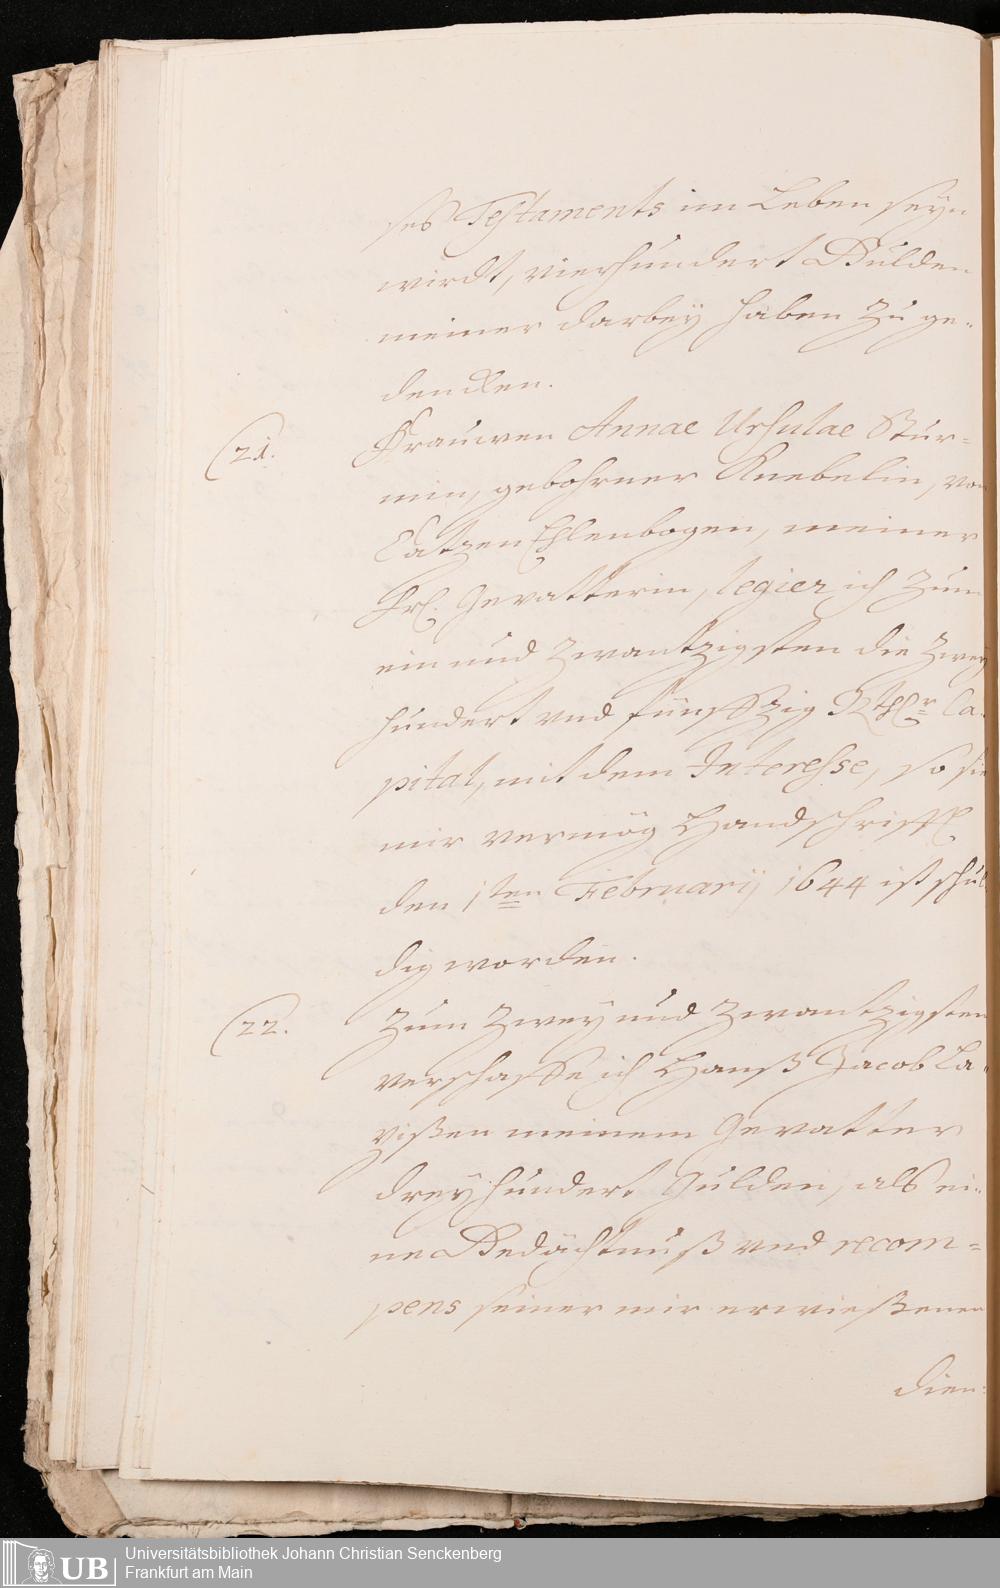 ses Testaments im Leben seyn
wirdt, vierhundert Gulden
meiner darbey haben zu ge-
dencken.
21. Frauwen Annae Ursulae Stur-
min, gebohrner Knebelin, von
Catzen Ehlenbogen, meiner
Frl. Gevatterin, legier ich zum
ein und zwantzigsten die zwey
hundert vnd fünffzig Rthlr Ca-
pital, mit dem Interesse, so sie
mir vermög Handschrifft
den 1ten Februarij 1644 ist schul
dig worden.
22. Zum zwey und zwantzigsten
verschaffe ich Hanß Jacob La-
vißen meinem Gevatter
dreyhundert Gulden, als ei-
ne Gedächtnuß vnd recom-
pens seiner mir erwießenen
dien-
Universitätsbibliothek Johann Christian Senckenberg
Frankfurt am Main
UB